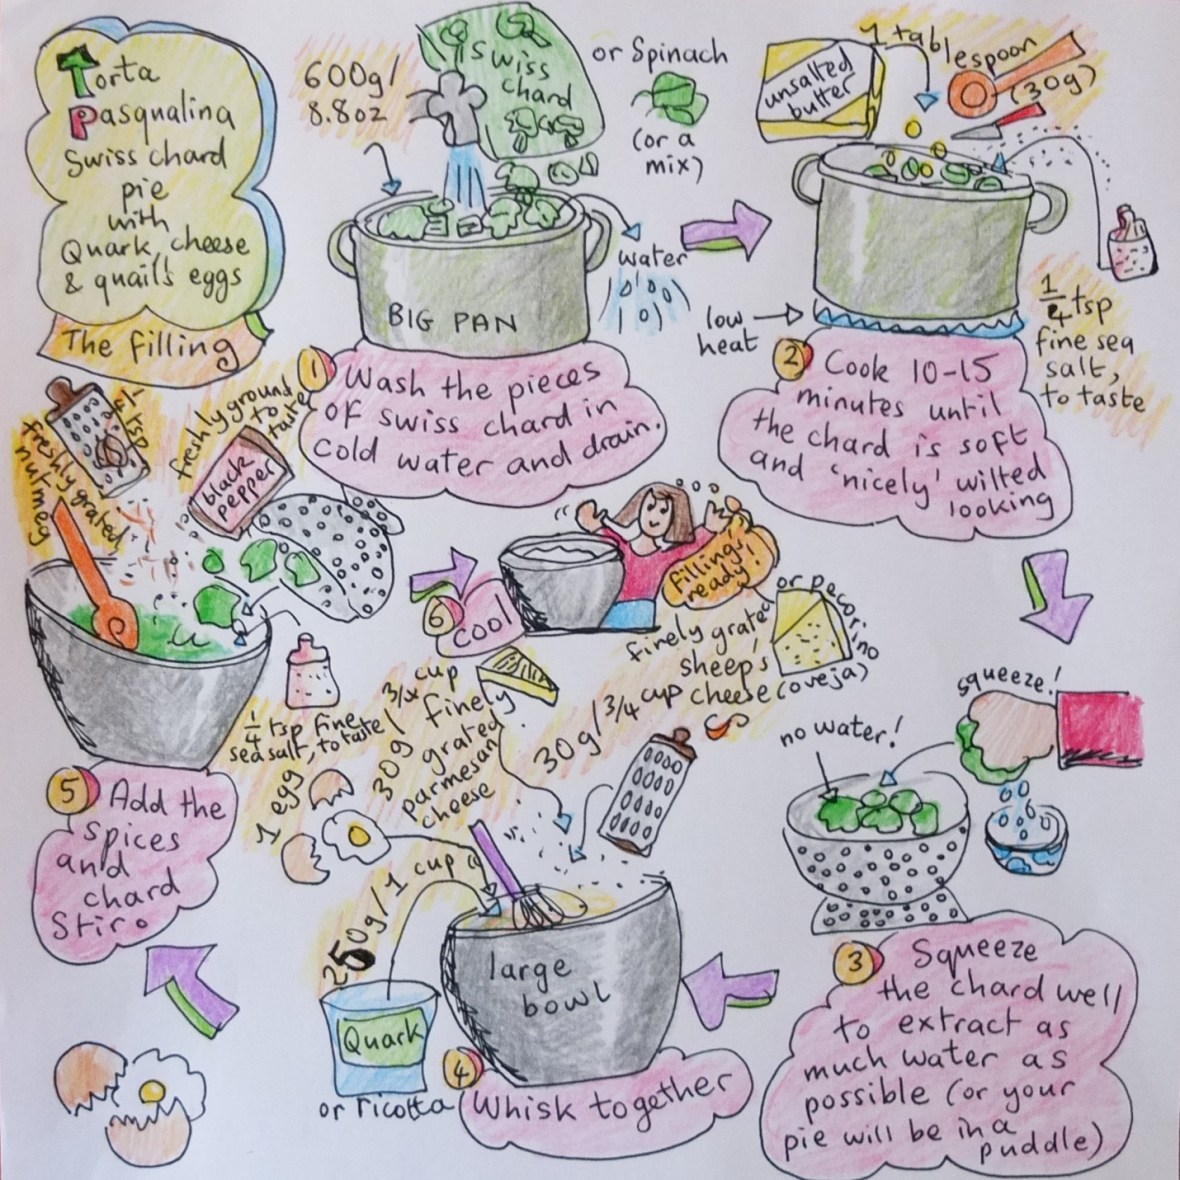 Torta
Pasqualina
Swiss chard
pie
with
Quark cheese
& quail's eggs
The filling
600g/
8.8oz
Swiss
chard
or Spinach
(or a
mix)
water
BIG PAN
1 Wash the pieces
of swiss chard in
cold water and drain.
unsalted
butter
1 tablespoon
(30g)
low
heat
1/4 tsp
fine sea
salt,
to taste
2 Cook 10-15
minutes until
the chard is soft
and 'nicely' wilted
looking
squeeze!
no water!
3 Squeeze
the chard well
to extract as
much water as
possible (or your
pie will be in a
puddle)
1 egg
3/4 cup
30g finely
grated
parmesan
cheese
30g/3/4 cup
finely grated
sheep's
cheese (oveja)
or pecorino
250g/1 cup
Quark
or ricotta
large
bowl
4 Whisk together
freshly grated
nutmeg
1/4 tsp
freshly ground
to
taste
black
pepper
1/4 tsp fine
sea salt, to taste
5 Add the
spices
and
chard
Stir.
6 Cool
filling's
ready!